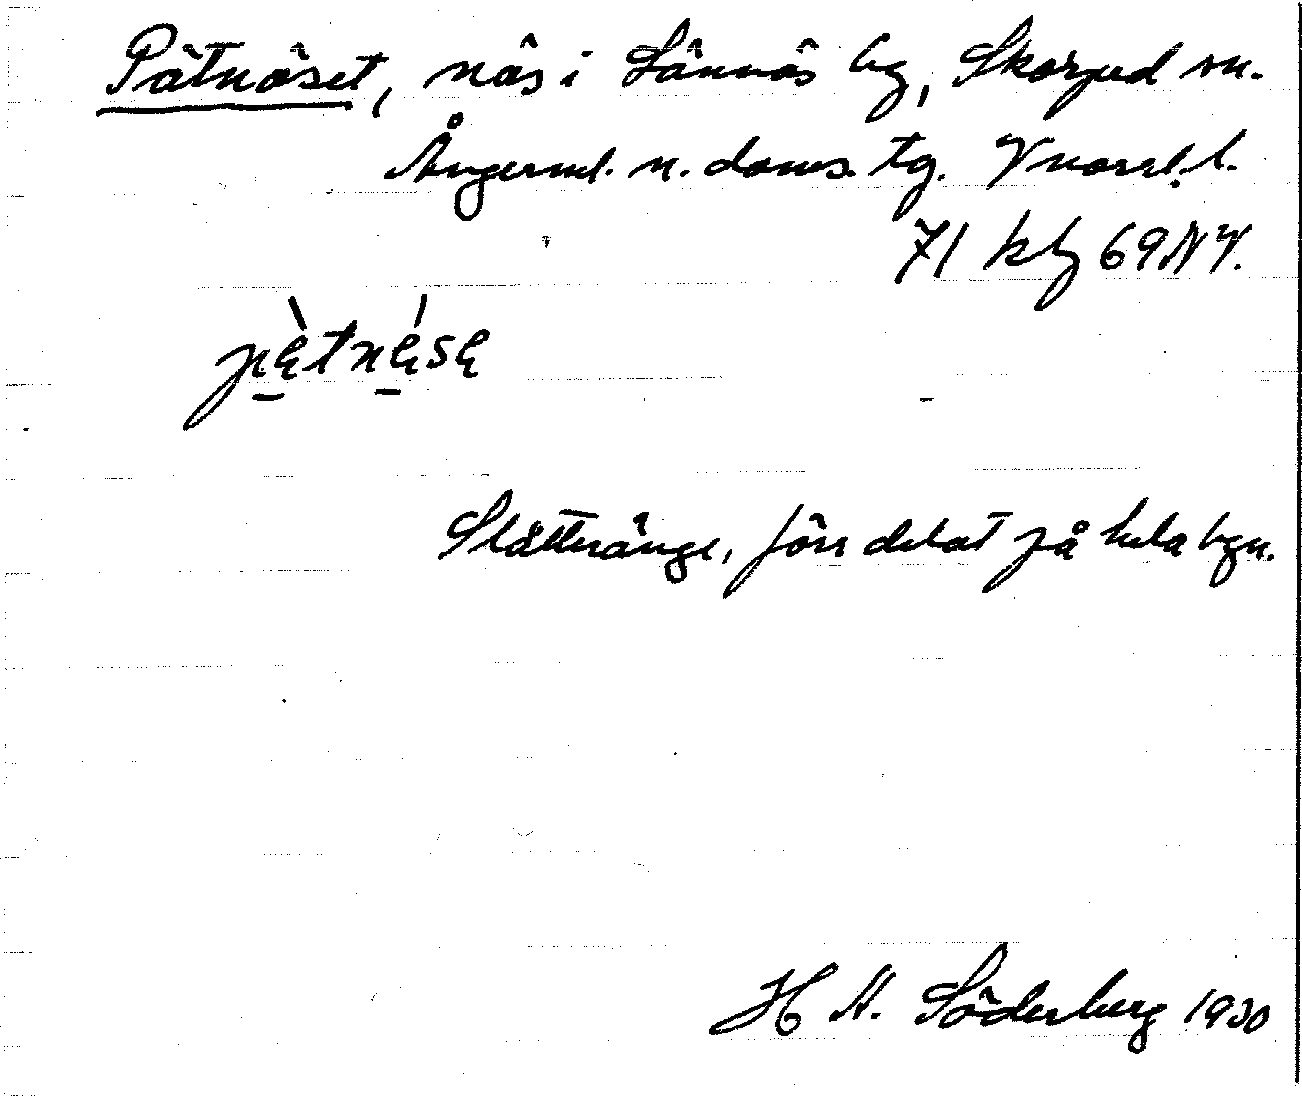 Pätnäset, näs i Lännäs by, Skorped sn.
Ångerml. n. doms. tg. Vnorrl. l.
71 kbl 69 NV.
pètnése
Slåtteränge, förr delat på hela byn.
H H. Söderberg 1930